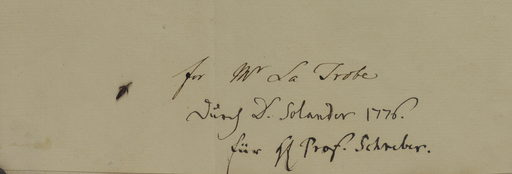 for Mr La Trobe
Durch D. Solander 1776.
für H Prof. Schreber.